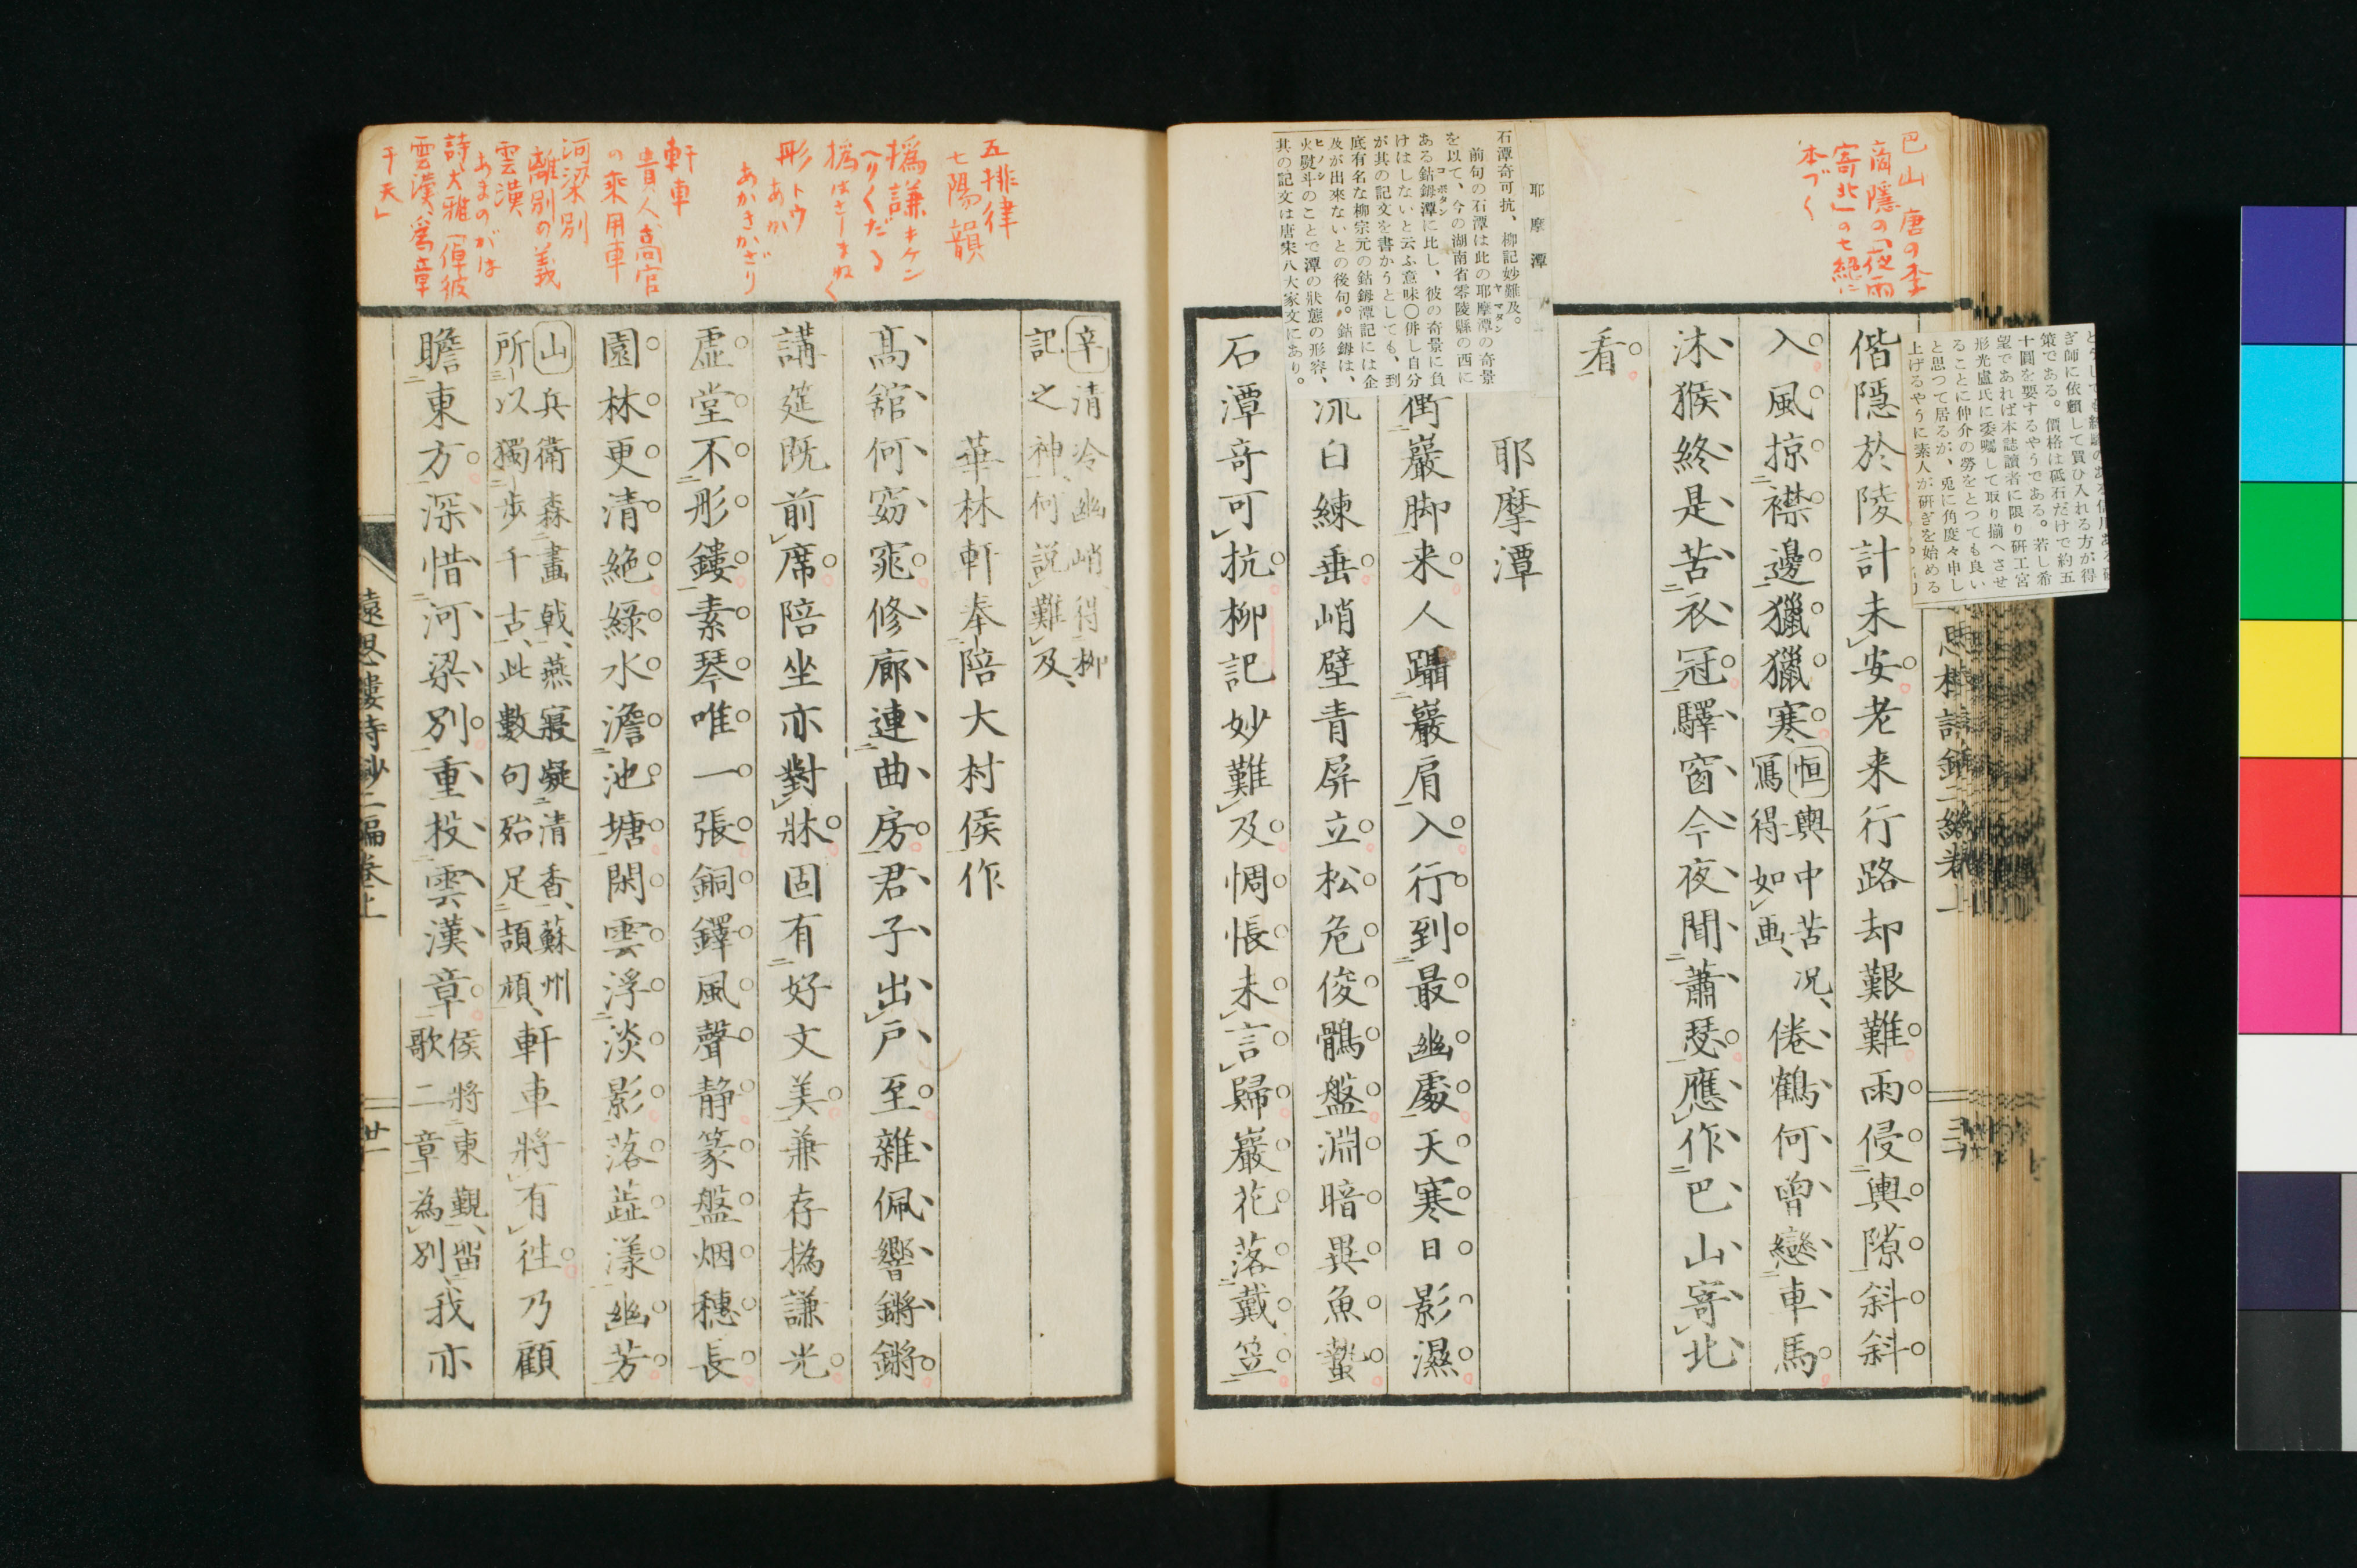 巴山 唐の李
商隠の「夜雨
寄北」の七絶に
本づく
ぎ師に依頼して買ひ入れる方が得
策である。價格は砥石だけで約五
十圓を要するやうである。若し希
望であれば本誌讀者に限り研工宮
形光盧氏に委囑して取り揃へさせ
ることに仲介の勞をとつても良い
と思つて居るが、兎に角度々申し
上げるやうに素人が研ぎを始める
偕隱於陵計未安老来行路却艱難雨侵輿隙斜斜
入風掠襟邊獵獵寒
恒輿中苦况、
寫得如画、
倦鶴何曽戀車馬
沐猴終是苦衣冠驛窗今夜聞蕭瑟應作巴山寄北
看
耶摩潭
耶摩潭
石潭奇可抗、柳記妙難及。
前句の石潭は此の耶摩潭の奇景
ヤマタン
を以て、今の湖南省零陵縣の西に
ある鈷鉧潭に比し、彼の奇景に負
コボタン
けはしないと云ふ意味〇併し自分
が其の記文を書かうとしても、到
底有名な柳宗元の鈷鉧潭記には企
及が出來ないとの後句。鈷鉧は、
火熨斗のことで潭の狀態の形容、
ヒノシ
其の記文は唐宋八大家文にあり。
衝巖脚来人躡巖肩入行到最幽處天寒日影濕
流白練垂峭壁青屏立松危俊鶻盤淵暗異魚蟄
石潭奇可抗柳記妙難及惆悵未言歸巖花落戴笠
辛清冷幽峭、得柳
記之神、何説難及、
華林軒奉陪大村侯作
五排律
七陽韻
撝謙キケン
へりくだる
撝はさしまねく
彤トウ
あか
あかきかざり
軒車
貴人高官
の乘用車
河梁別
離別の義
雲漢
あまのがは
詩大雅「倬彼
雲漢、爲章
于天」
髙舘何窈窕修廊連曲房君子出戸至雜佩響鏘鏘
講筵既前席陪坐亦對牀固有好文美兼存撝謙光
虚堂不彤鏤素琴唯一張銅鐸風聲静篆盤烟穗長
園林更清絶緑水澹池塘閑雲浮淡影落蕋漾幽芳
山兵衛森畫戟、燕寢凝清香、蘇州
所以獨步千古、此數句殆足頡頏、
軒車將有徃乃顧
瞻東方深惜河梁別重投雲漢章
侯將東覲、留
歌二章為別
我亦
遠思樓詩鈔二編卷上
廿一